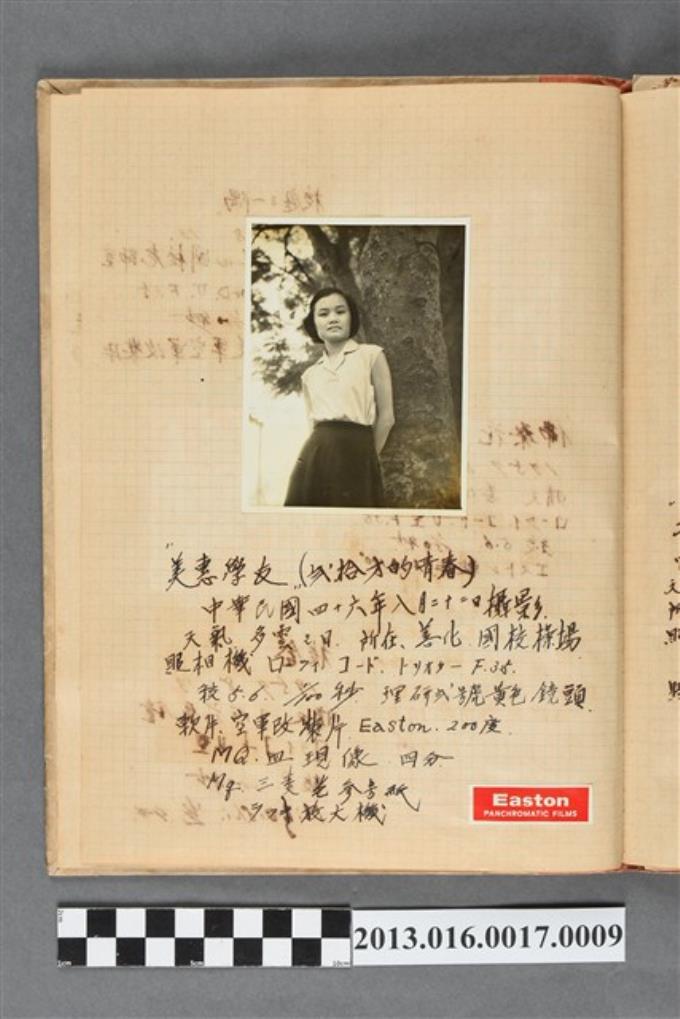 "美惠學友"(弍拾才的青春)
中華民國四十六年八月二十二日攝影
天氣 多雲之日. 所在. 善化 國校操場
照相機 ローライコード. トリオター F.3.5.
校 5.6. 1/100秒. 理研弍號黃色鏡頭
軟片. 空軍改裝片 Easton. 200度.
MQ. 皿 現像 四分
Mg. 三菱 参号紙
放大機
Easton
PANCHROMATIC FILMS
2cm
1cm
5cm
10cm
2013.016.0017.0009